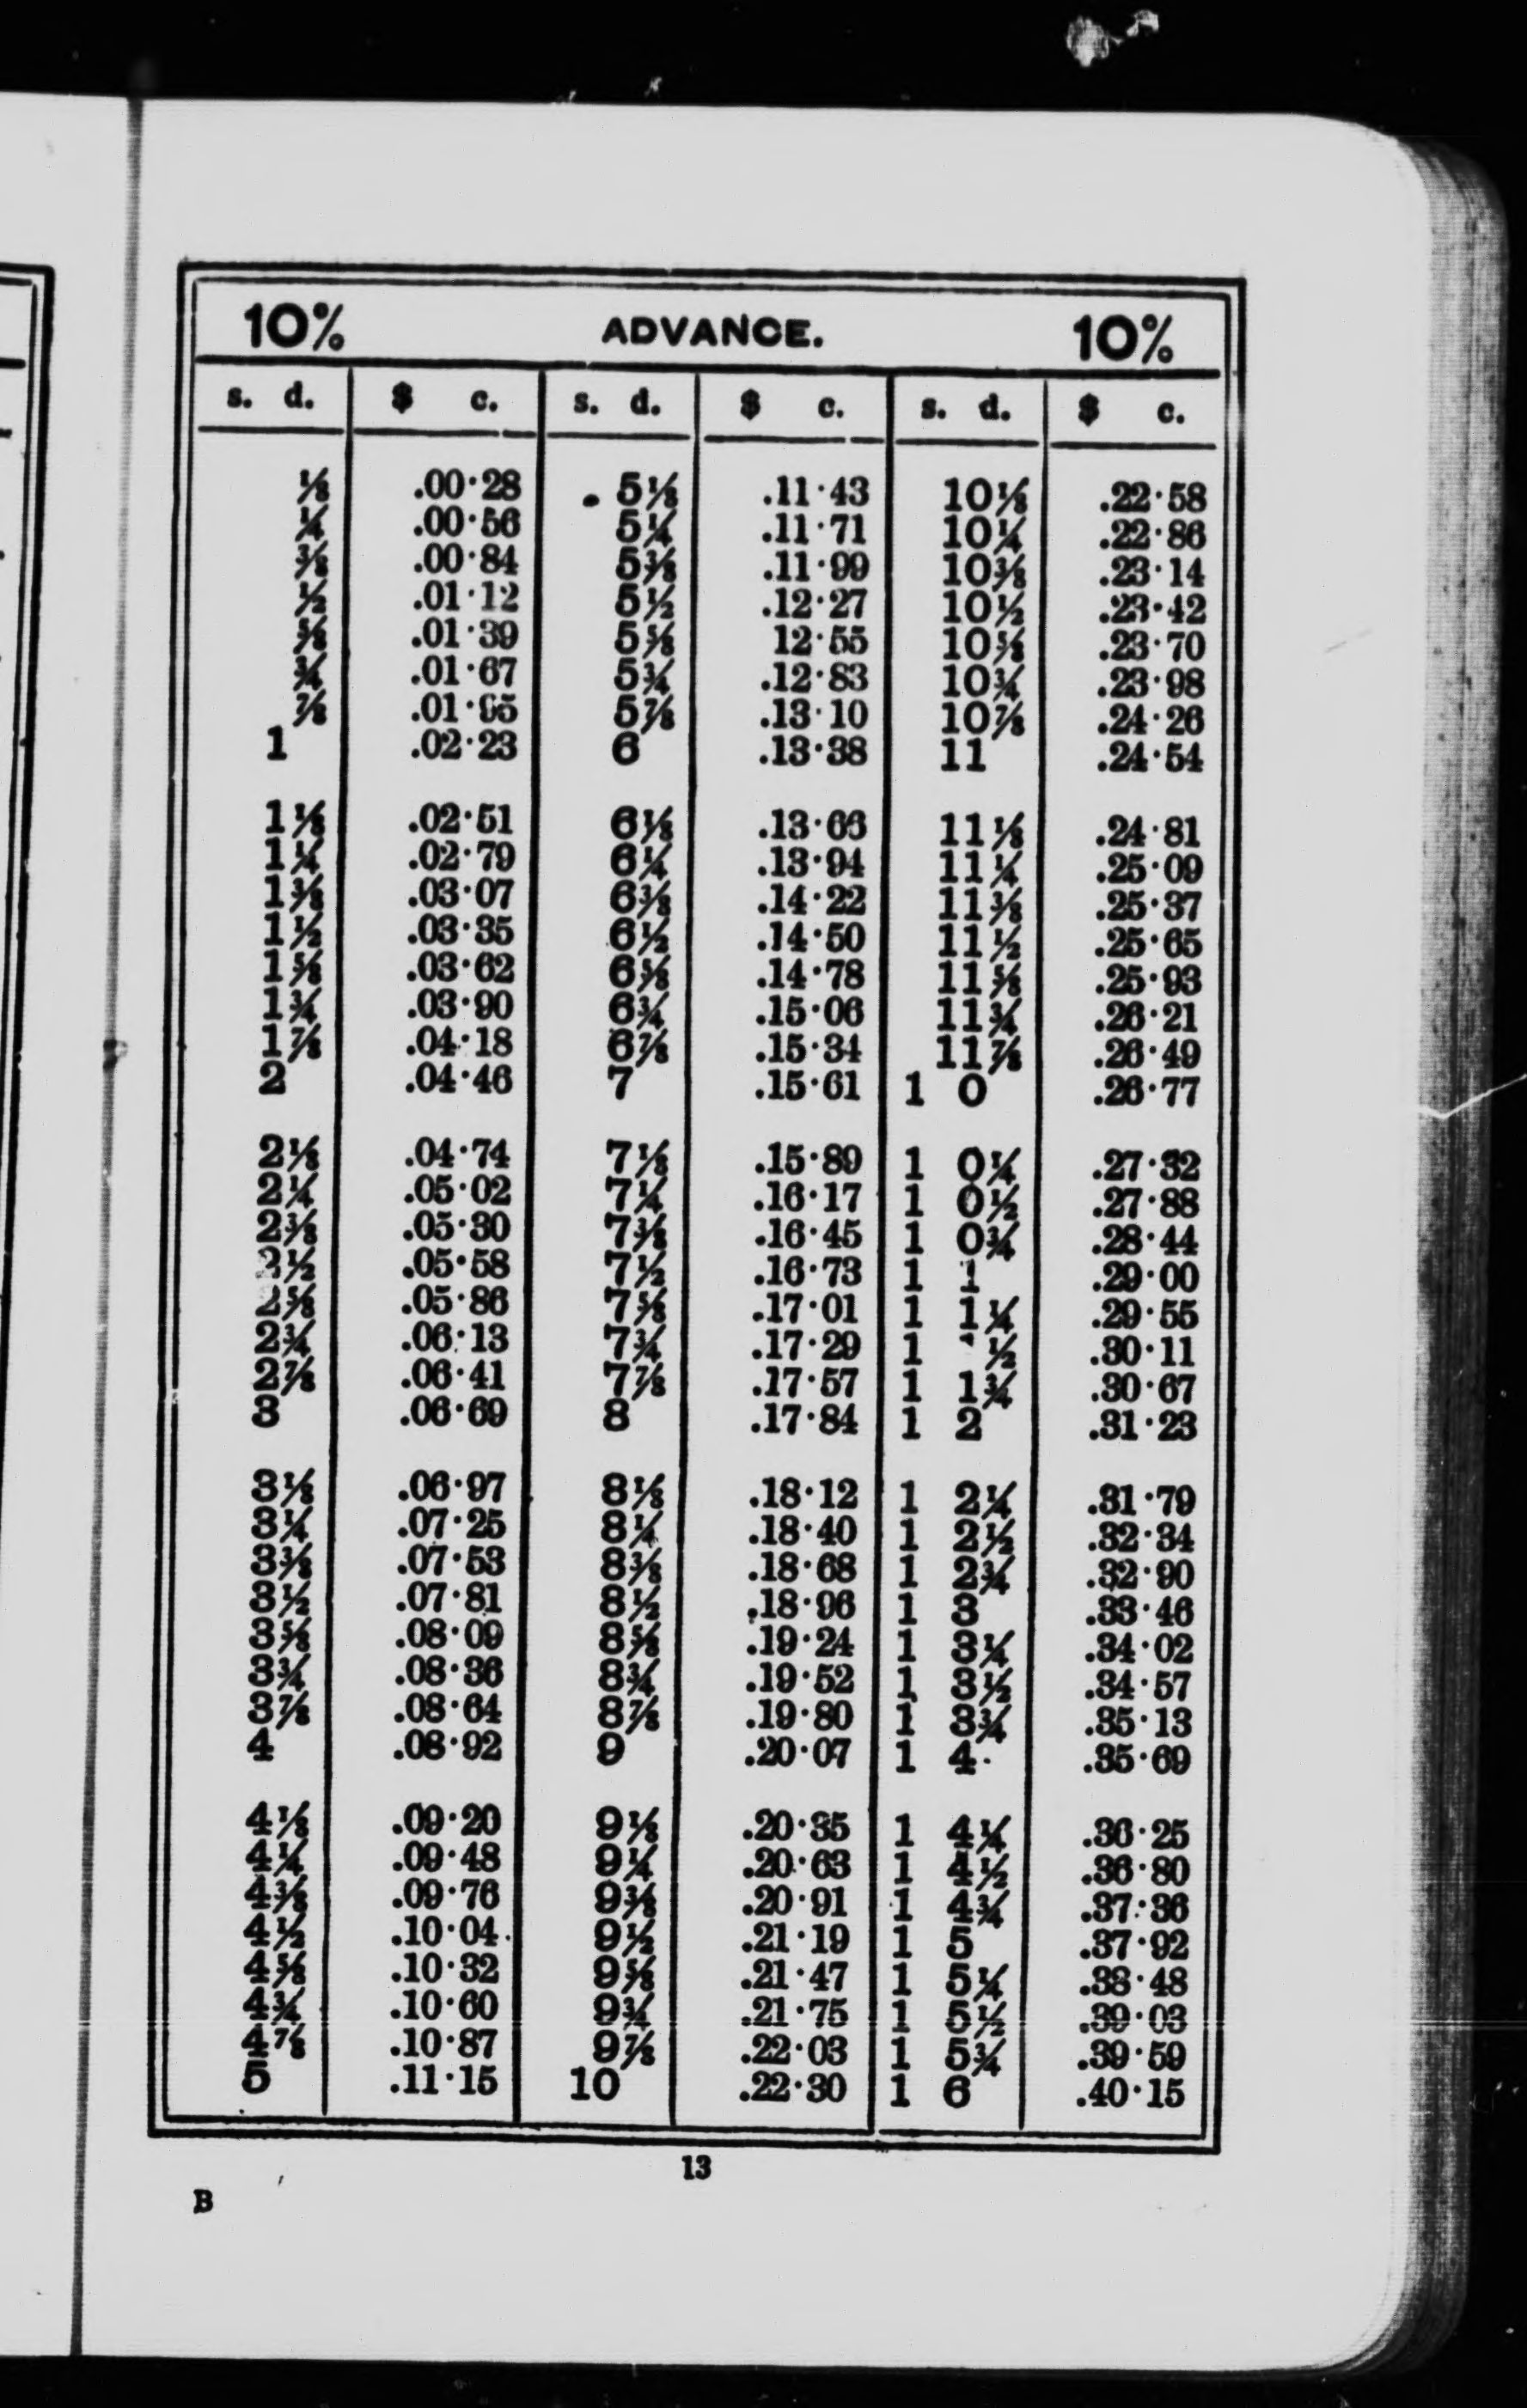 10% ADVANCE. 10%
s. d. $ c. s. d. $ c. s. d. $ c.
⅛ .00·28 5⅛ .11·43 10⅛ .22·58
¼ .00·56 5¼ .11·71 10¼ .22·86
⅜ .00·84 5⅜ .11·99 10⅜ .23·14
½ .01·12 5½ .12·27 10½ .23·42
⅝ .01·39 5⅝ 12·55 10⅝ .23·70
¾ .01·67 5¾ .12·83 10¾ .23·98
⅞ .01·95 5⅞ .13·10 10⅞ .24·26
1 .02·23 6 .13·38 11 .24·54
1⅛ .02·51 6⅛ .13·66 11⅛ .24·81
1¼ .02·79 6¼ .13·94 11¼ .25·09
1⅜ .03·07 6⅜ .14·22 11⅜ .25·37
1½ .03·35 6½ .14·50 11½ .25·65
1⅝ .03·62 6⅝ .14·78 11⅝ .25·93
1¾ .03·90 6¾ .15·06 11¾ .26·21
1⅞ .04·18 6⅞ .15·34 11⅞ .26·49
2 .04·46 7 .15·61 1 0 .26·77
2⅛ .04·74 7⅛ .15·89 1 0¼ .27·32
2¼ .05·02 7¼ .16·17 1 0½ .27·88
2⅜ .05·30 7⅜ .16·45 1 0¾ .28·44
2½ .05·58 7½ .16·73 1 1 .29·00
2⅝ .05·86 7⅝ .17·01 1 1¼ .29·55
2¾ .06·13 7¾ .17·29 1 ½ .30·11
2⅞ .06·41 7⅞ .17·57 1 1¾ .30·67
3 .06·69 8 .17·84 1 2 .31·23
3⅛ .06·97 8⅛ .18·12 1 2¼ .31·79
3¼ .07·25 8¼ .18·40 1 2½ .32·34
3⅜ .07·53 8⅜ .18·68 1 2¾ .32·90
3½ .07·81 8½ .18·96 1 3 .33·46
3⅝ .08·09 8⅝ .19·24 1 3¼ .34·02
3¾ .08·36 8¾ .19·52 1 3½ .34·57
3⅞ .08·64 8⅞ .19·80 1 3¾ .35·13
4 .08·92 9 .20·07 1 4 .35·69
4⅛ .09·20 9⅛ .20·35 1 4¼ .36·25
4¼ .09·48 9¼ .20·63 1 4½ .36·80
4⅜ .09·76 9⅜ .20·91 1 4¾ .37·36
4½ .10·04 9½ .21·19 1 5 .37·92
4⅝ .10·32 9⅝ .21·47 1 5¼ .38·48
4¾ .10·60 9¾ .21·75 1 5½ .39·03
4⅞ .10·87 9⅞ .22·03 1 5¾ .39·59
5 .11·15 10 .22·30 1 6 .40·15
13
B